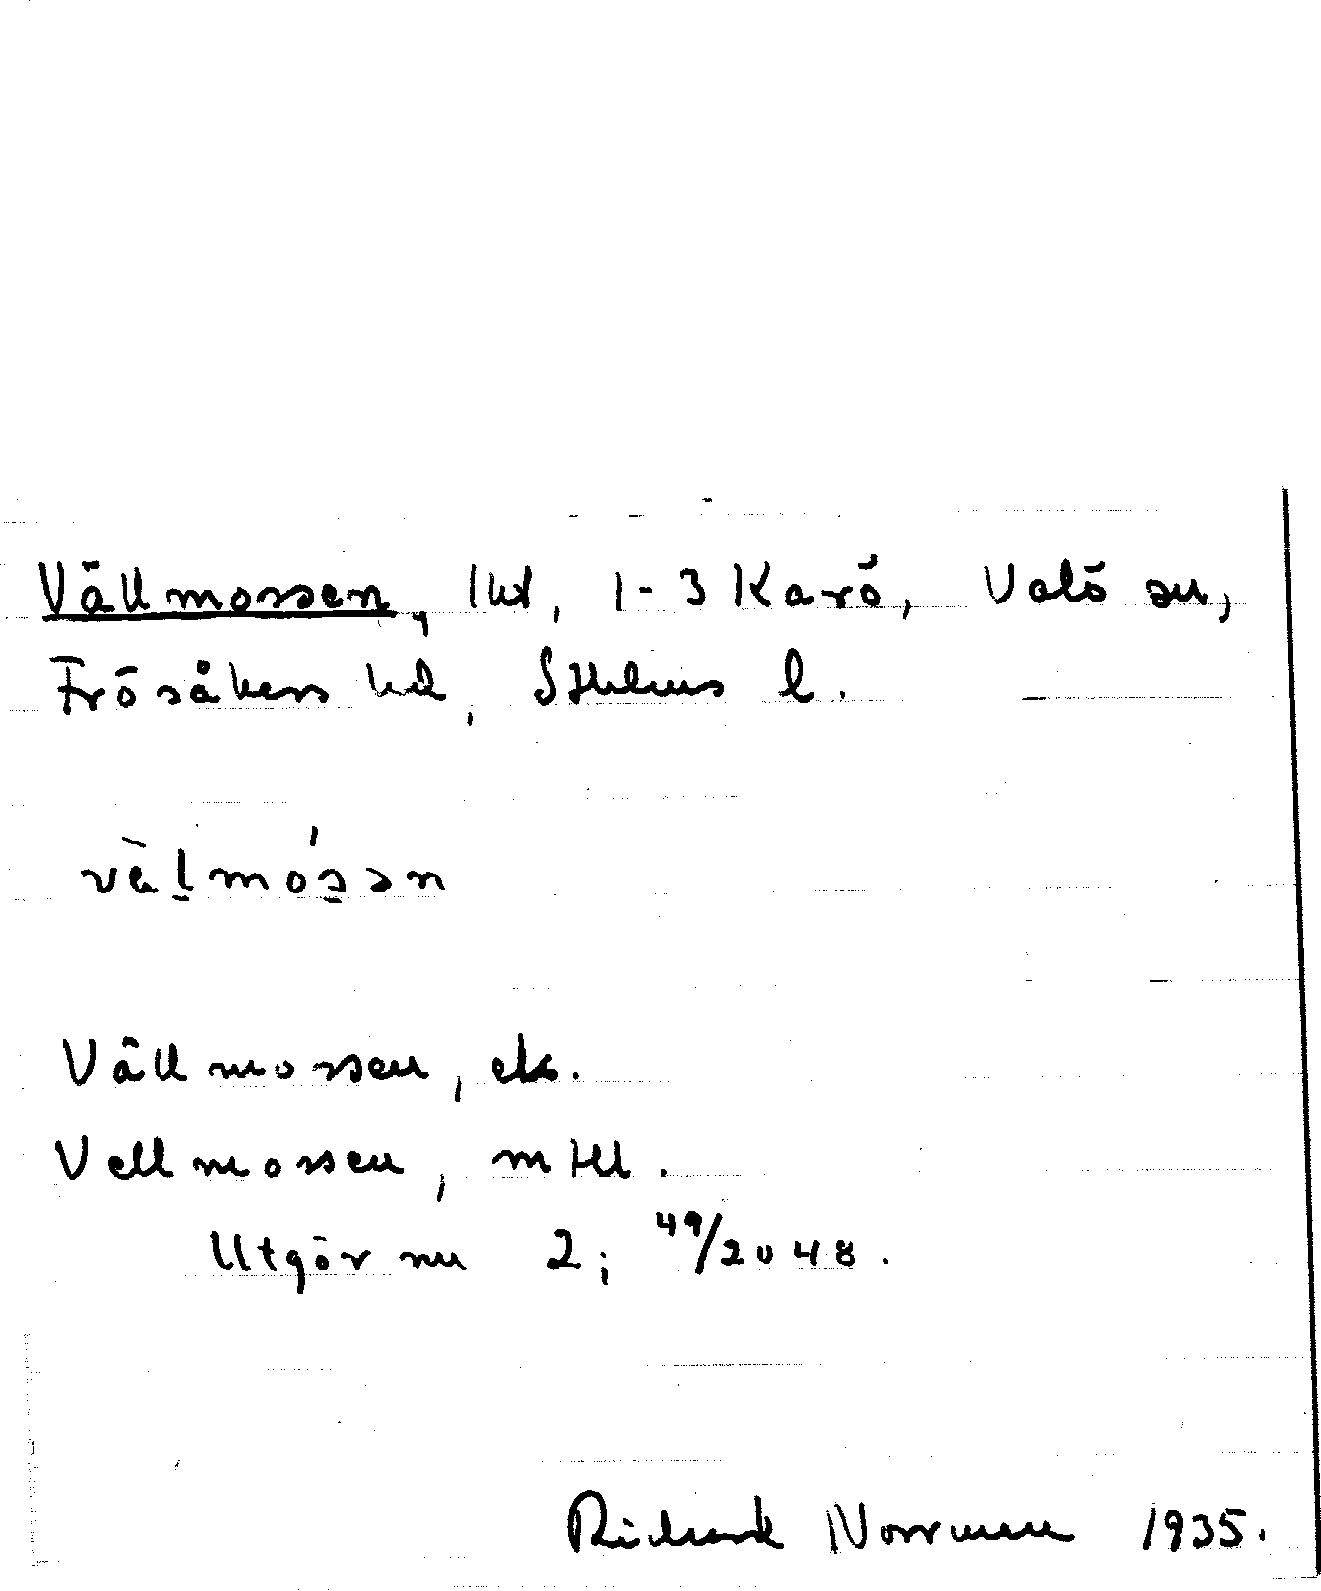 Vällmossen, lht, 1-3 Karö, Valö sn,
Frösåkers hd, Sthlms l.
vȧl̠mós̠ən
Vällmossen, ek.
Vellmossen, mtl.
Utgör nu 2; 49/2048.
Richard Norrman 1935.